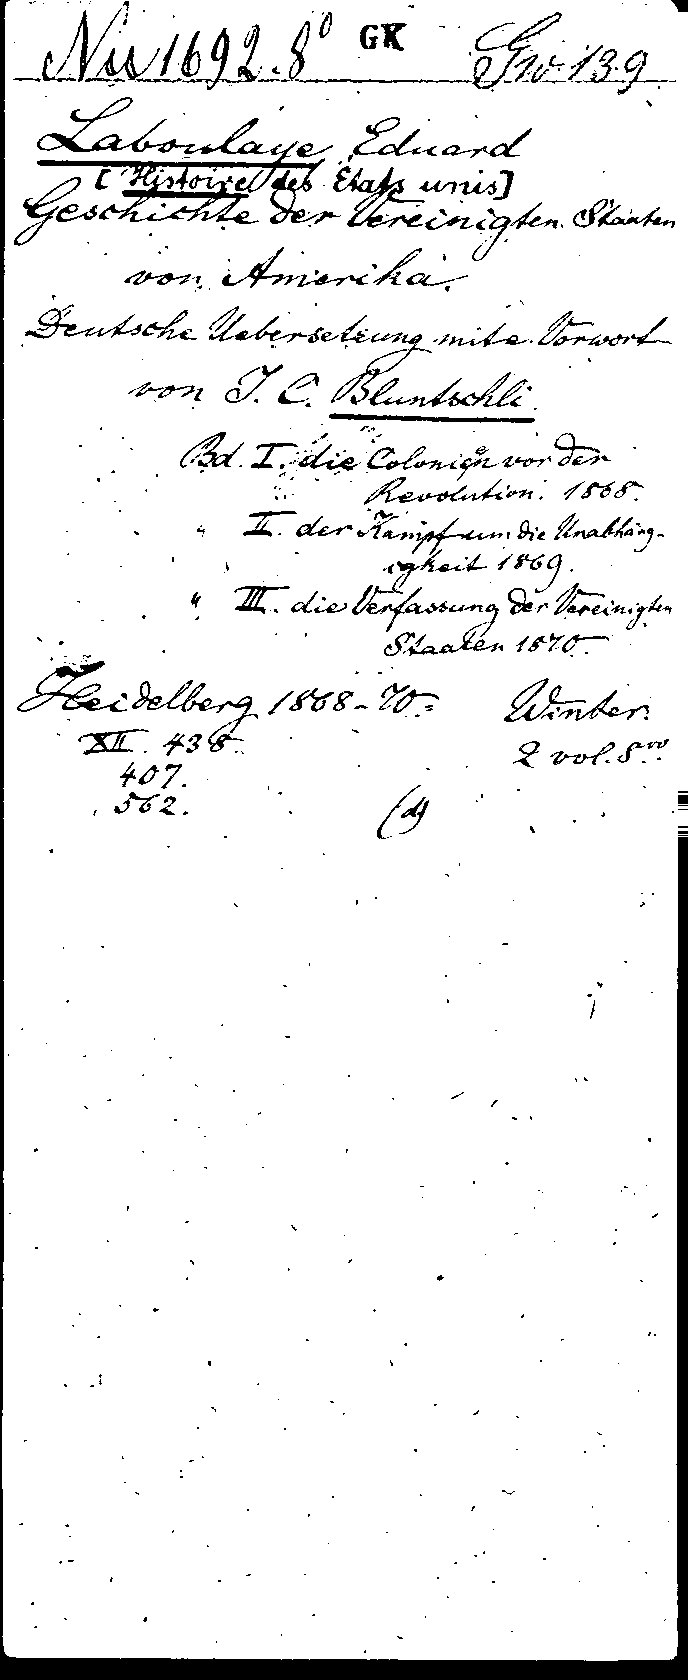 Nu 1692.8° GK Gw 139
Laboulaye, Eduard
[Histoire des Etats unis]
Geschichte der Vereinigten Staaten
von Amerika.
Deutsche Uebersetzung mit e. Vorwort
von J. C. Bluntschli
Bd. I. die Colonien vor der
Revolution. 1868.
" II. der Kampf um die Unabhäng-
igkeit 1869.
" III. die Verfassung der Vereinigten
Staaten 1870.
Heidelberg 1868-70. Winter.
XII. 438. 2 vol. 8vo
407.
562. (d)